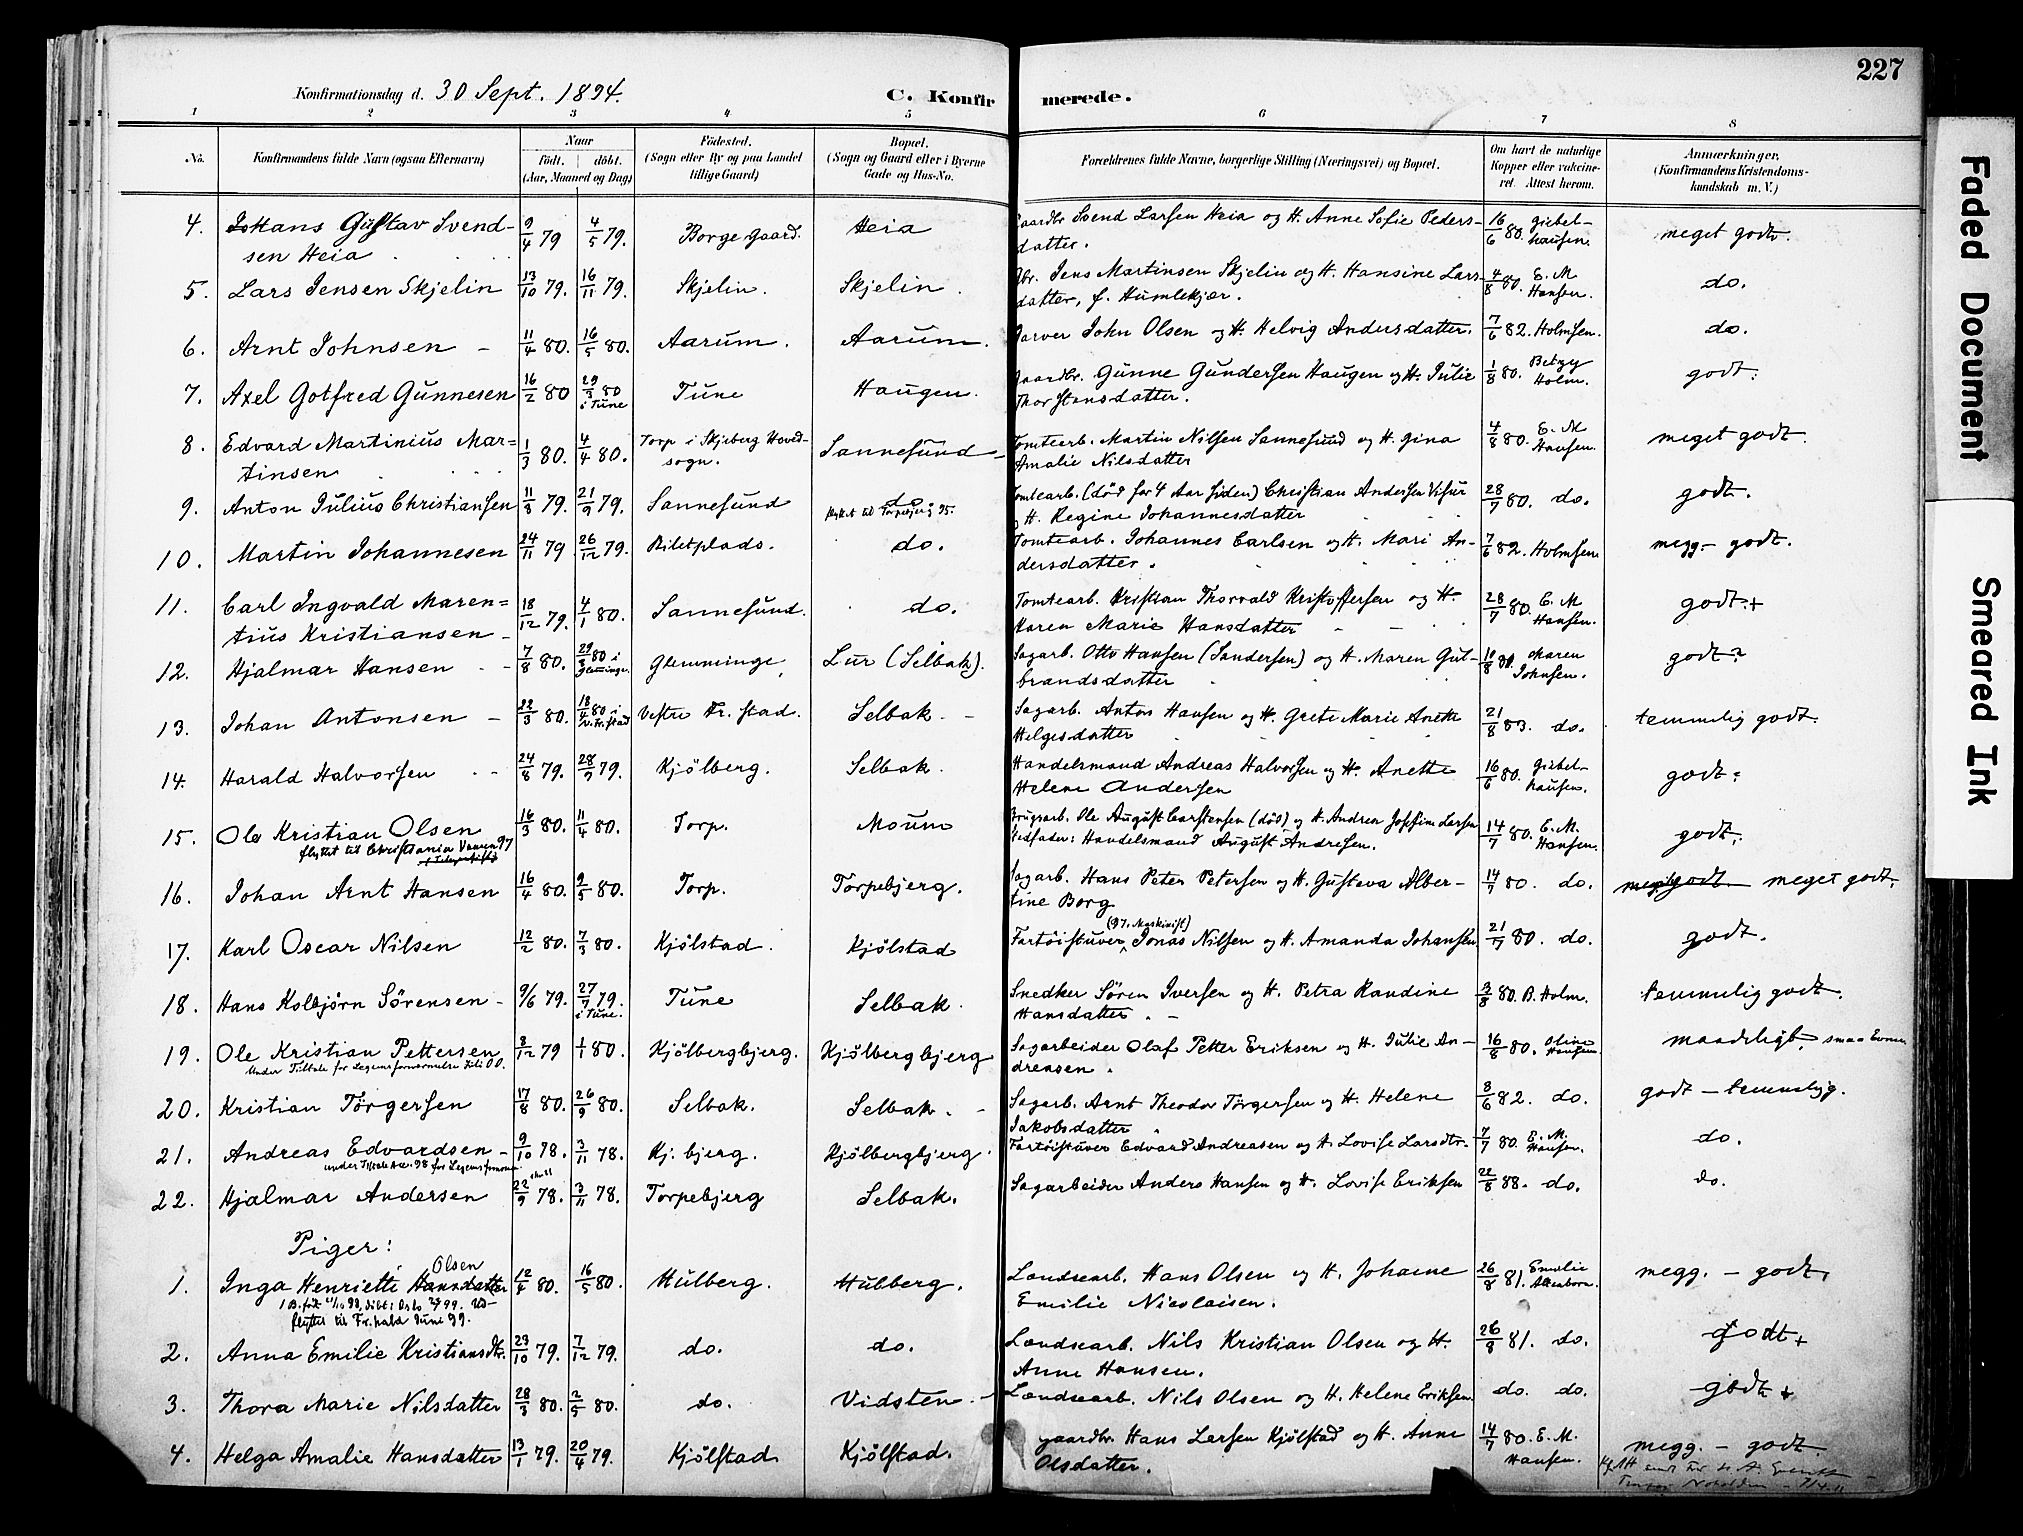 227
Konfirmationsdag d. 30 Sept. 1894.
C. Konfirmerede.
1 2 3 4 5 6 7 8
No.
Konfirmandens fulde Navn (ogsaa Efternavn)
Naar
födt. döbt.
(Aar, Maaned og Dag)
Födested.
(Sogn eller By og paa Landet
tillige Gaard)
Bopæl.
(Sogn og Gaard eller i Byerne
Gade og Hus-No.
Forældrenes fulde Navne, borgerlige Stilling (Næringsvei) og Bopæl.
Om havt de naturlige
Kopper eller vakcine-
ret. Attest herom.
Anmærkninger.
(Konfirmandens Kristendoms-
kundskab m. V.)
4. Johans Gustav Svend- 9/4 79 4/5 79. Borge Gaard. Heia Gaardbr. Svend Larsen Heia og H. Anne Sofie Peders- 16/6 80. Giebel- meget godt.
sen Heia datter. hausen.
5. Lars Jensen Skjelin 13/10 79. 16/11 79. Skjelin. Skjelin. Gbr. Jens Martinsen Skjelin og H. Hansine Lars- 4/8 80. E. M. do.
datter, f. Humlekjær. Hansen.
6. Arnt Johnsen 11/4 80. 16/5 80. Aarum. Aarum. Garver John Olsen og H. Helvig Andersdatter. 7/6 82. Holmsen. do.
7. Axel Gotfred Gunnesen 16/2 80 29/3 80 Tune Haugen. Gaardbr. Gunne Gundersen Haugen og H. Julie 1/8 80. Betzy godt.
i Tune Thorstensdatter. Holm.
8. Edvard Martinius Mar= 1/3 80. 4/4 80. Torp i Skjeberg Hoved- Sannesund Tomtearb. Martin Nilsen Sannesund og H. Gina 4/8 80. E. M meget godt.
tinsen sogn. Amalie Nilsdatter Hansen.
9. Anton Julius Christiansen 11/8 79. 21/9 79. Sannesund do Tomtearb. (död for 4 Aar siden) Christian Andersen 28/7 80. do. godt.
flyttet til Torpebjerg 95. og H. Regine Johannesdatter
10. Martin Johannesen 24/11 79 26/12 79. do. Tomtearb. Johannes Carlsen og H. Mari An- 7/6 82. Holmsen megg. - godt.
dersdatter.
11. Carl Ingvald Maren= 18/12 79. 4/1 80. Sannesund. do. Tomtearb. Kristian Thorvald Kristoffersen og H. 28/7 80. E. M godt.+
tius Kristiansen Karen Marie Hansdatter Hansen.
12. Hjalmar Hansen 7/8 80. 29/3 80 i Glemminge Lur (Selbak). Sagarb. Otto Hansen (Sandersen) og H. Maren Gul- Maren godt?
Glemminge brandsdatter Johnsen.
13. Johan Antonsen 22/3 80. 18/4 80 i Vestre Fr. stad. Selbak. Sagarb. Anton Hansen og H. Grete Marie Anette 21/8 83. do. temmelig godt.
V. Fr. stad Helgesdatter
14. Harald Halvorsen 24/8 79. 28/9 79. Kjölberg. Selbak. Handelsmand Andreas Halvorsen og H. Anette 16/6 80. Giebel- godt.
Helene Andersen hausen.
15. Ole Kristian Olsen 16/3 80. 11/4 80. Torp. Moum Brugsarb. Ole August Carstensen (död) og H. Andrea Josefine Larsen 14/7 80. E. M. godt.
flyttet til Christiania Stedfader: Handelsmand August Andresen. Hansen.
16. Johan Arnt Hansen 16/4 80. 9/5 80. Torp. Torpebjerg. Sagarb. Hans Peter Petersen og H. Gustava Alber- 14/7 80. do. meget godt.
tine Borg
(97. Maskinist)
17. Karl Oscar Nilsen 12/2 80. 7/3 80. Kjölstad. Kjölstad Fartöistuver Jonas Nilsen og H. Amanda Johansen 21/7 80. do. godt.
18. Hans Kolbjörn Sörensen 9/6 79. 27/7 79. Tune Selbak. Snedker Sören Iversen og H. Petra Randine 3/8 80. B. Holm. temmelig godt.
i Tune. Hansdatter
19. Ole Kristian Pettersen 8/12 79 1/1 80. Kjölbergbjerg. Kjölbergbjerg Sagarbeider Olaf Petter Eriksen og H. Julie An- 16/8 80. Oline maadeligt, smaa Evner
Under Tiltale for Legemsfornærmelse Juli 00. dreasen. Hansen.
20. Kristian Törgersen 17/8 80. 26/9 80. Selbak. Selbak. Sagarb. Arnt Theodor Törgersen og H. Helene 8/6 82. do. godt - temmelig.
Jakobsdatter
21. Andreas Edvardsen 9/10 78. 3/11 78. Kj. bjerg. Kjölbergbjerg. Fartöistuver Edvard Andreasen og H. Lovise Larsdtr. 7/7 80. E. M. do.
Hansen.
22. Hjalmar Andersen 22/9 78. 3/11 78. Torpebjerg Selbak. Sagarbeider Anders Hansen og H. Lovise Eriksen 22/8 88. do. do.
Piger:
Olsen
1. Inga Henriette Hansdatter 12/4 80. 16/5 80. Hulberg. Hulberg. Landsearb. Hans Olsen og H. Johanne 26/8 81. Emilie megg. - godt.
flyttet til Fr.hald Juni 99. Emilie Nicolaisen.
2. Anna Emilie Kristiansdtr. 23/10 79. 7/12 79. do. do. Landsearb. Nils Kristian Olsen og H. 26/8 81. do. godt+
Anne Hansen.
3. Thora Marie Nilsdatter 28/3 80. 2/5 80. do. Vidsten. Landsearb. Nils Olsen og H. Helene Eriksen do. do. godt+
4. Helga Amalie Hansdatter 13/1 79. 20/4 79. Kjölstad Kjölstad. Gaardbr. Hans Larsen Kjölstad og H. Anne 14/7 80. E. M. megg. - godt
Olsdatter. Hansen.
Faded Document
Smeared Ink